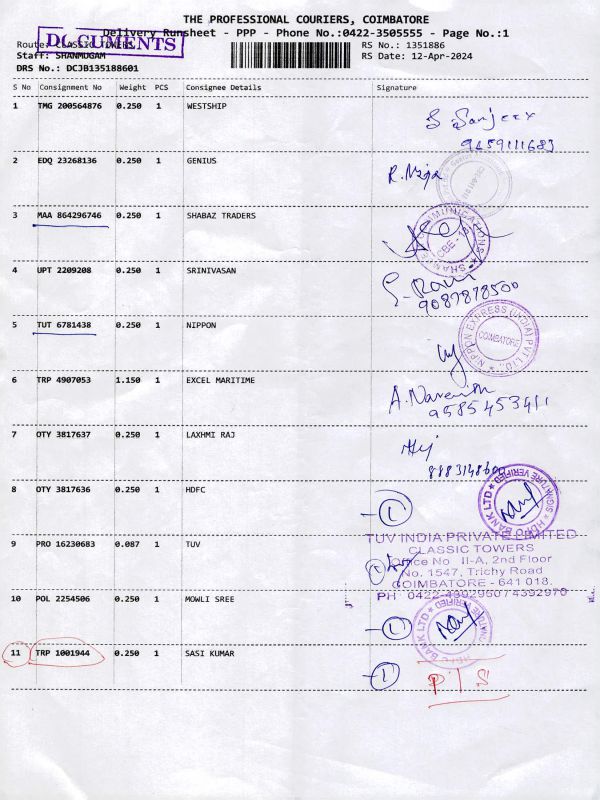 THE PROFESSIONAL COURIERS, COIMBATORE
Delivery Runsheet - PPP - Phone No.:0422-3505555 - Page No.:1
DOCUMENTS
Route: CLASSIC TOWERS,
RS No.: 1351886
Staff: SHANMUGAM
RS Date: 12-Apr-2024
DRS No.: DCJB135188601
S No Consignment No Weight PCS Consignee Details Signature
1 TMG 200564876 0.250 1 WESTSHIP
S Sanjeev
9659111683
2 EDQ 23268136 0.250 1 GENIUS
3 MAA 864296746 0.250 1 SHABAZ TRADERS
CBE - 18
4 UPT 2209208 0.250 1 SRINIVASAN
S. Ram
9087878500
5 TUT 6781438 0.250 1 NIPPON
NIPPON EXPRESS (INDIA) PVT LTD.
COIMBATORE
6 TRP 4907053 1.150 1 EXCEL MARITIME
9585453411
7 OTY 3817637 0.250 1 LAXHMI RAJ
8 OTY 3817636 0.250 1 HDFC
HDFC BANK LTD
SIGNATURE VERIFIED
9 PRO 16230683 0.087 1 TUV
TUV INDIA PRIVATE LIMITED
CLASSIC TOWERS
Office No II-A, 2nd Floor
No. 1547, Trichy Road
COIMBATORE - 641 018.
PH 0422-4392950 / 4392970
10 POL 2254506 0.250 1 MOWLI SREE
11 TRP 1001944 0.250 1 SASI KUMAR
P/S